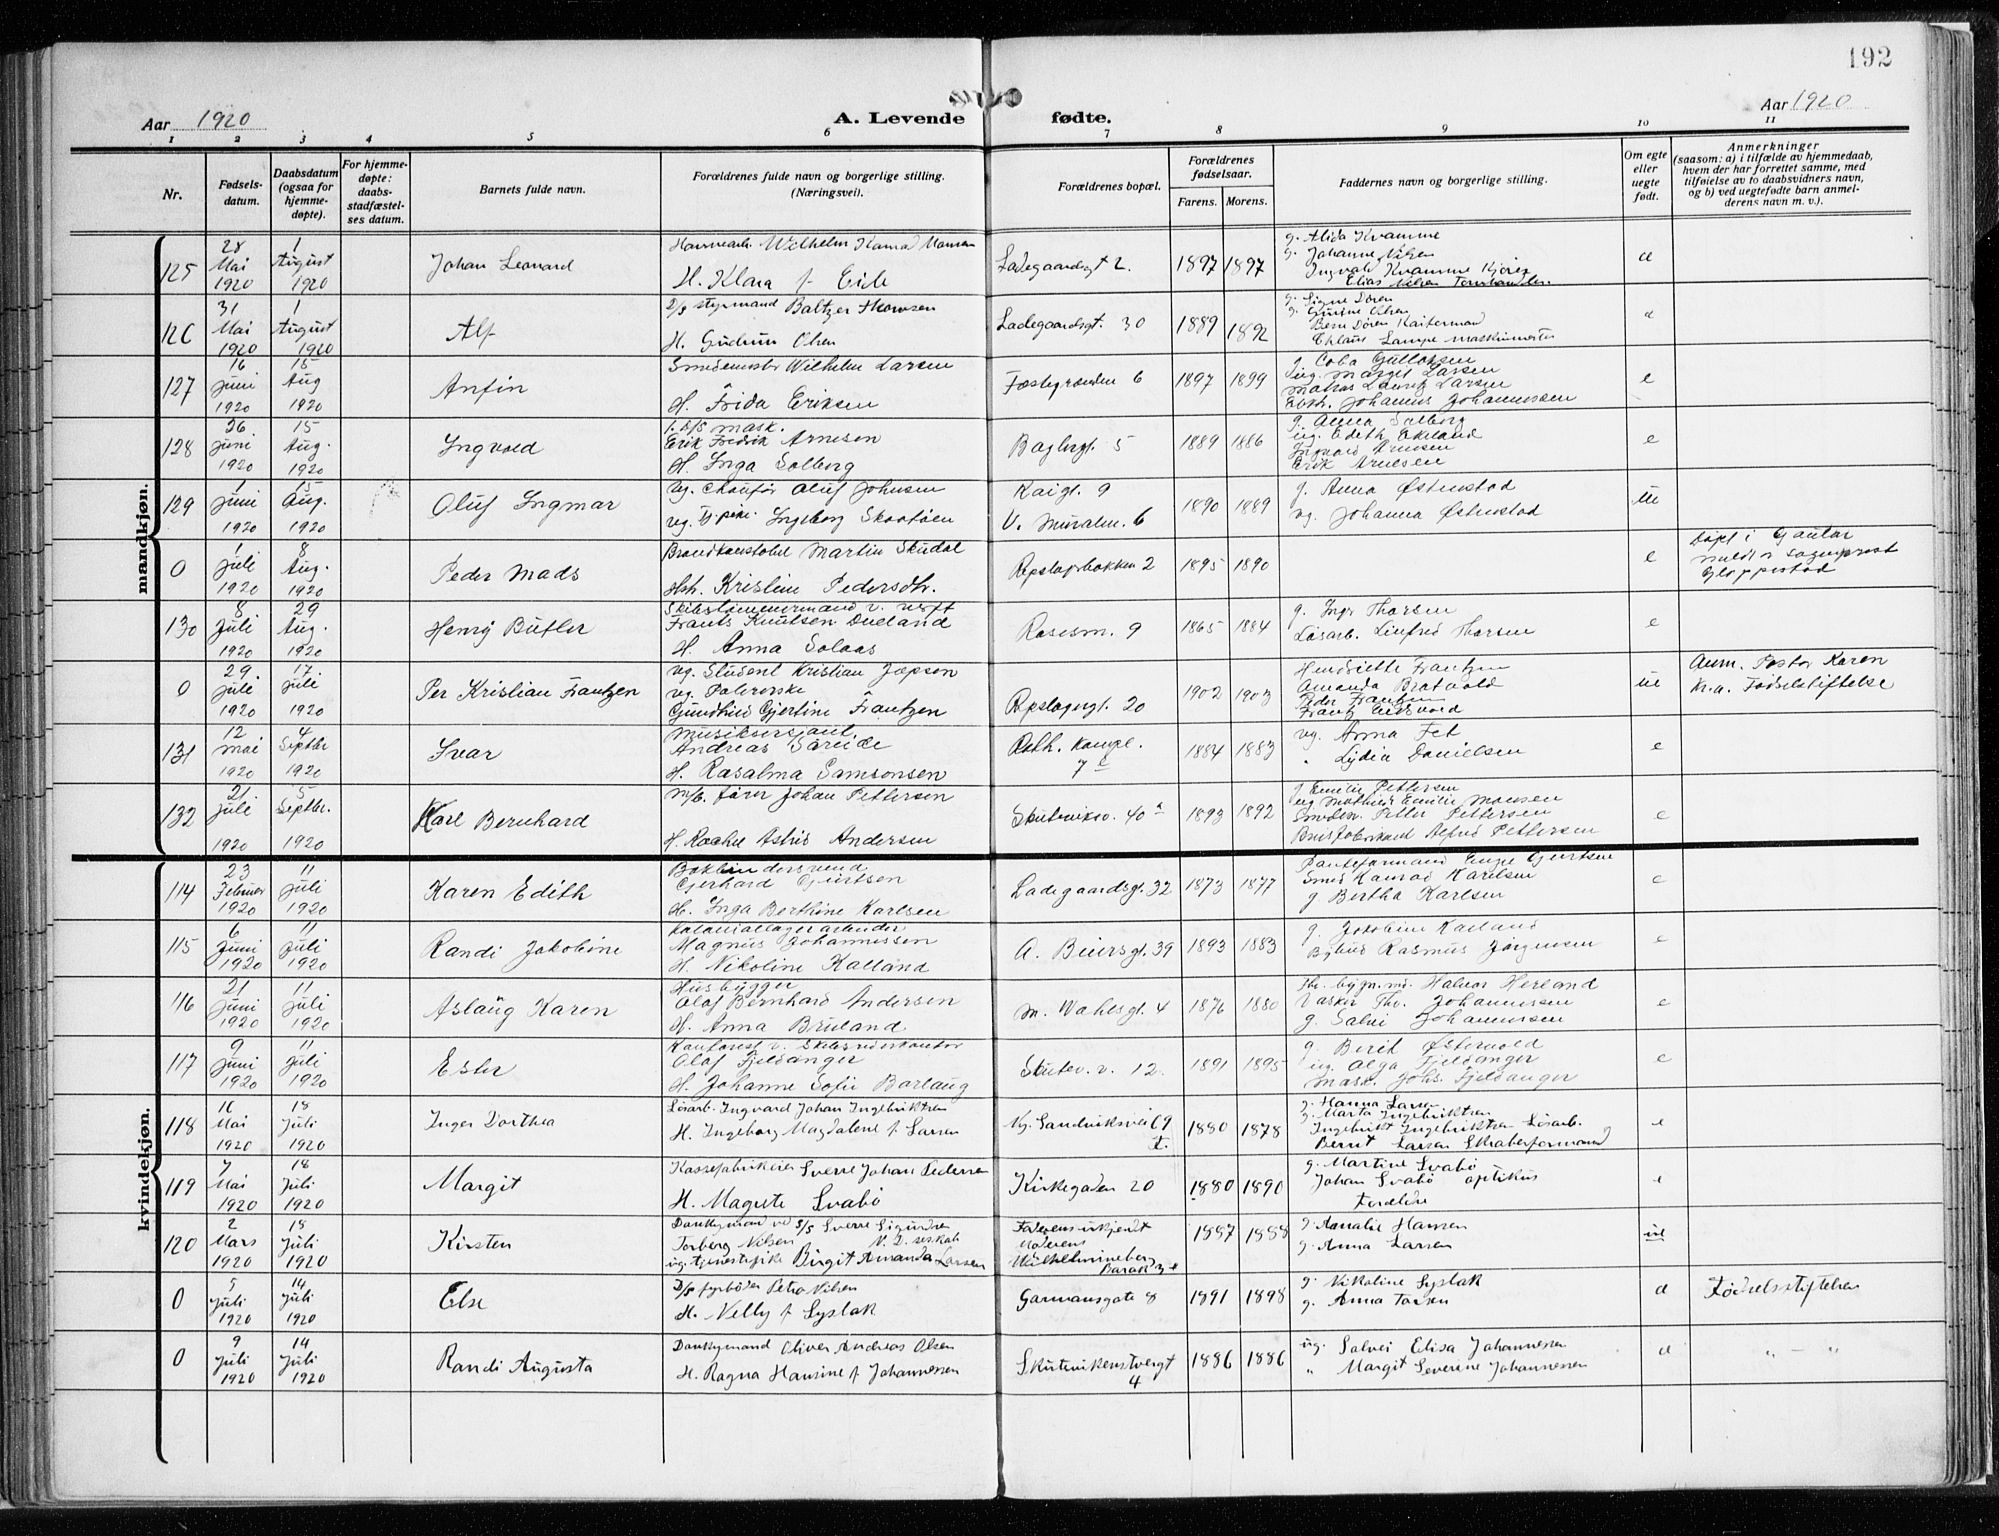 192
Aar 1920
A. Levende fødte.
Aar 1920
1 2 3 4 5 6 7 8 9 10 11
Nr.
Fødsels-
datum.
Daabsdatum
(ogsaa for
hjemme-
døpte).
For hjemme-
døpte:
daabs-
stadfæstel-
ses datum.
Barnets fulde navn.
Forældrenes fulde navn og borgerlige stilling.
(Næringsvei).
Forældrenes bopæl.
Forældrenes
fødselsaar.
Farens. Morens.
Faddernes navn og borgerlige stilling.
Om egte
eller
uegte
født.
Anmerkninger
(saasom: a) i tilfælde av hjemmedaab,
hvem der har forrettet samme, med
tilføielse av to daabsvidners navn,
og b) ved uegtefødte barn anmel-
derens navn m. v.).
mandkjøn.
125
28
Mai
1920
1
August
1920
Johan Leonard
Wilhelm
H. Klara f Eide
Ladegaardsgt 2.
1897 1897
g. Alida Kvamme
g. Johanne Nilsen
Ingvald Kvamme
Elias Nilsen
126
31
Mai
1920
1
August
1920
Alf
D/S styrmand Baltzer Thomsen
H. Gudrun Olsen
Ladegaardsgt. 30
1889 1892
g. Signe Dören
Olsen
Bern Dören
Lampe maskinmester
127
16
Juni
1920
15
Aug
1920
Anfin
Smedemester Wilhelm Larsen
H. Frida Eriksen
6
1897 1899
g.
ug. Margit Larsen
Larsen
Johannes Johannessen
e
128
26
Juni
1920
15
Aug.
1920
Ingvold
1. D/S mask.
Erik Fredrik Arnesen
H. Inga Solberg
Baglergt. 5
1889 1886
g. Anna Solberg
ug. Edith Ekeland
Ingvard Arnesen
Erik Arnesen
e
129
1
Juni
1920
15
Aug.
1920
Oluf Ingmar
ug. Chauför Oluf Johnsen
ug. Tj.pike Ingeborg
Kaigt. 9
V. Muralm. 6
1890 1889
g. Anna Østenstad
ug. Johanna Østenstad
ue
0
1
Juli
1920
8
Aug.
1920
Peder Mads
Brandkonstabel Martin Skudal
Hst. Kristine Pedersdtr.
Repslagerbakken 2
1895 1890
e
Døpt i Gaular
sogneprest
130
8
Juli
1920
29
Aug.
1920
Henry Butler
Skibstømmermand v. verft
Frants Knutsen
H. Anna Solaas
Rosesm. 9
1865 1884
g. Inga Thorsen
Løsarb. Thorsen
e
0
29
Juli
1920
17
Juli
1920
Per Kristian Frantzen
ug. Student Kristian Jepson
ug.
Gunhild Gjertine Frantzen
Repslagergt. 20
1902 1903
Henriette Frantzen
Amanda Bratvold
Peder Frantzen
Frantz
ue
Anm. Pastor Karen
K.a. Fødselsstiftelse
131
12
Mai
1920
4
Septbr
1920
Ivar
Musiksersjant
Andreas Søreide
H. Rosalma Samsonsen
7 c
1884 1883
ug. Anna Fet
" Lydia Danielsen
e
132
21
Juli
1920
5
Septbr.
1920
Karl Bernhard
m/b. fører Johan Pettersen
H. Rachel Astrid Andersen
Skuteviksv. 40 a
1893 1892
g Emilie Pettersen
ug Mathilde Emilie Monsen
Petter Pettersen
Alfred Pettersen
e
kvindekjøn.
114
23
Februar
1920
11
Juli
1920
Karen Edith
Bokbindersvend
Gjerhard Gjertsen
H. Inga Berthine Karlsen
Ladegaardsgt. 32
1873 1877
Gjertsen
Smed Konrad Karlsen
g Bertha Karlsen
e
115
6
Juni
1920
11
Juli
1920
Randi Jakobine
Koloniallagerarbeider
Magnus Johannessen
H. Nikoline Kalland
A. Beiersgt. 39
1893 1883
g. Jakobine Kalland
Bybud Rasmus Jörgensen
e
116
21
Juni
1920
11
Juli
1920
Aslaug Karen
Husbygger
Olaf Bernhard Andersen
H. Anna Bruland
M. Wahlsgt. 4
1876 1880
Halvor Herland
Johannessen
g. Salvei Johannessen
e
117
9
Juni
1920
11
Juli
1920
Ester
Kontorist v. Skibsrederkontor
Olaf Fjeldanger
H. Johanne Sofie Borlaug
Skutev. v. 12.
1891 1895
g. Berit Østervold
ug. Olga Fjeldanger
Mask. Johs. Fjeldanger
e
118
16
Mai
1920
18
Juli
1920
Inger Dorthea
Løsarb. Ingvard Johan Ingebriktsen
H. Ingeborg Magdalene f Larsen
Ny Sandviksvei 69
1880 1878
g. Hanna Larsen
g. Marta Ingebriktsen
Ingebrikt Ingebriktsen Løsarb.
Bernt Larsen
e
119
7
Mai
1920
18
Juli
1920
Margit
Kassefabrikeier Sverre Johan Pedersen
H. Magrete Svabö
Kirkegaden 20
1880 1890
g. Martine Svabö
Johan Svabö optikus
Foreldre
e
120
2
Mars
1920
18
Juli
1920
Kirsten
Donkeymand ved S/S Sverre Sigurdsen
Torberg Nilsen N. D. selskab
ug. tjenestepike Birgit Amanda Larsen
Faderens ukjendt
Moderens
Wilhelmineborg
Barak 3 e
1887 1888
g. Amalie Hansen
g. Anna Larsen
ue
0
5
Juli
1920
14
Juli
1920
Else
D/S fyrböder Petro Nilsen
H. Nelly f Systak
Garmannsgate 8
1891 1898
g. Nikoline Systak
g. Anna
Fødselsstiftelsen
0
9
Juli
1920
14
Juli
1920
Randi Augusta
Donkeymand Oliver Andreas Olsen
H. Ragna Hansine f Johannessen
Skutevikstorvgt
4
1886 1886
ug. Salvei Elisa Johannessen
" Margit Severine Johannessen
" – "